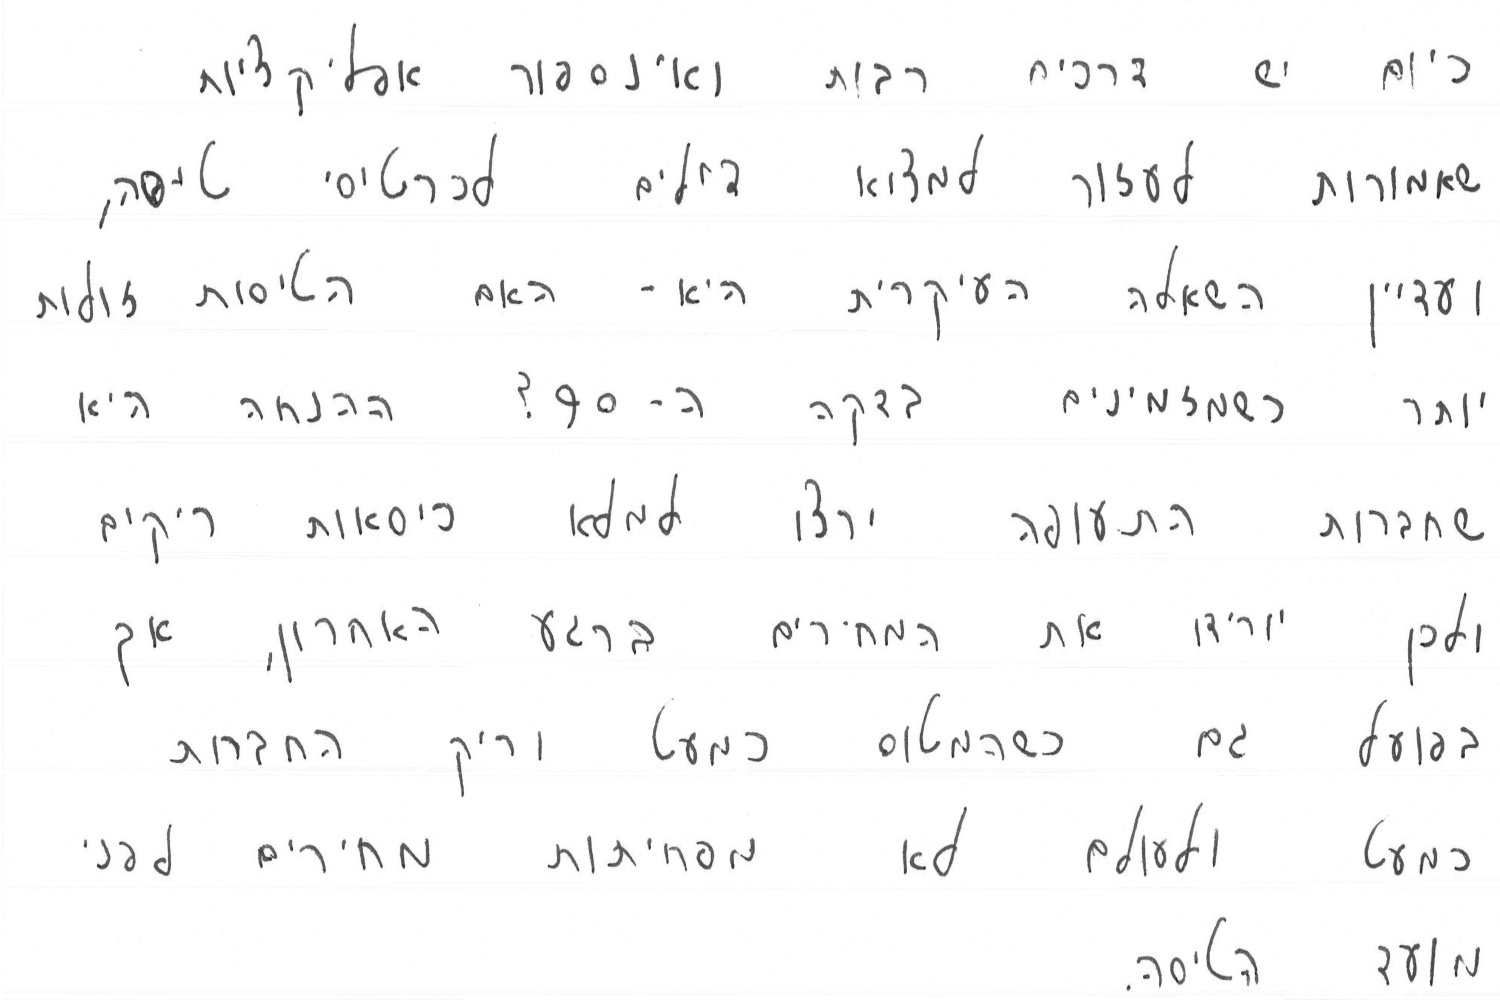 כיום יש דרכים רבות ואינספור אפליקציות
שאמורות לעזור למצוא דילים לכרטיסי טיסה,
ועדיין השאלה העיקרית היא - האם הטיסות זולות
יותר כשמזמינים בדקה ה-90? ההנחה היא
שחברות התעופה ירצו למלא כיסאות ריקים
ולכן יורידו את המחירים ברגע האחרון, אך
בפועל גם כשהמטוס כמעט וריק החברות
כמעט ולעולם לא מפחיתות מחירים לפני
מועד הטיסה.